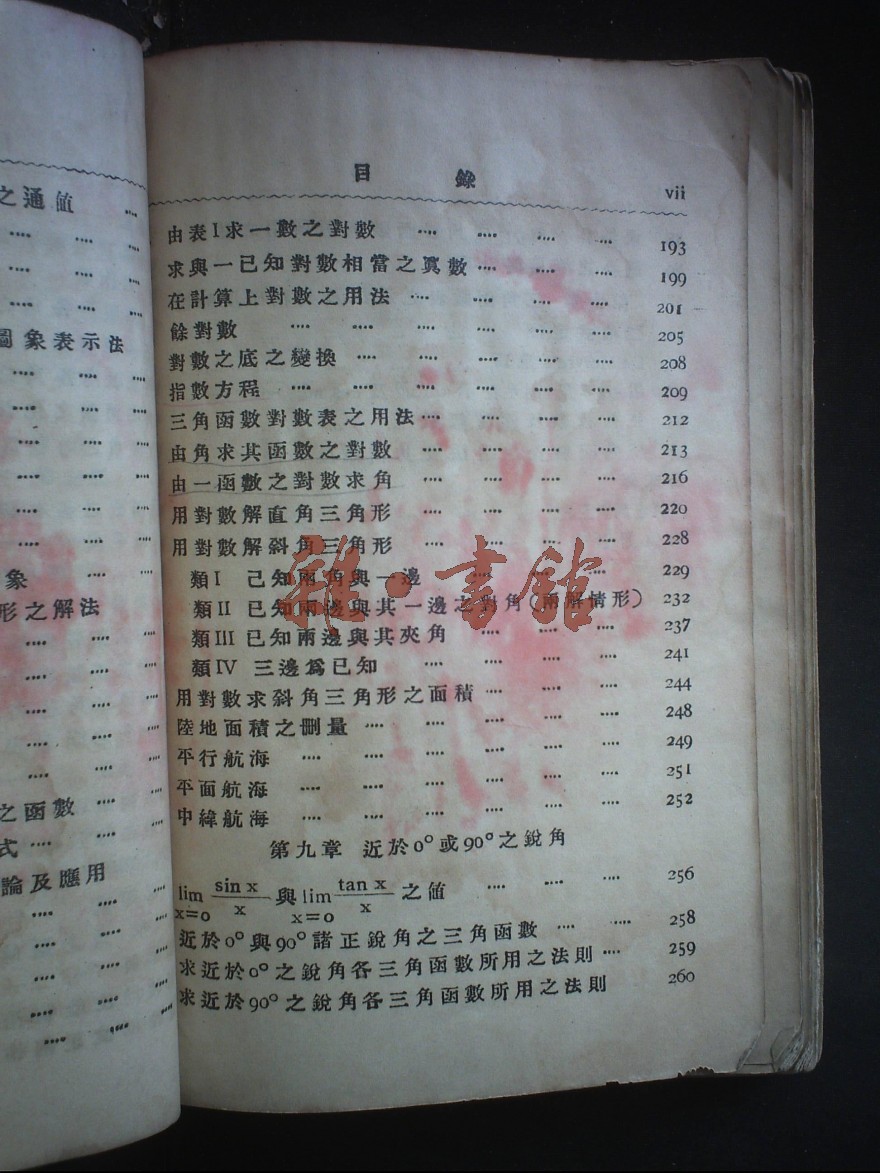 之通値 ....
圖象表示法
象 .... ....
形之解法
之函數 ....
式 .... ....
論及應用
目 錄 vii
由表I求一數之對數 .... .... .... .... 193
求與一已知對數相當之眞數 .... .... .... 199
在計算上對數之用法 .... .... .... .... 201
餘對數 .... .... .... .... .... .... 205
對數之底之變換 .... .... .... .... .... 208
指數方程 .... .... .... .... .... .... 209
三角函數對數表之用法 .... .... .... .... 212
由角求其函數之對數 .... .... .... .... 213
由一函數之對數求角 .... .... .... .... 216
用對數解直角三角形 .... .... .... .... 220
用對數解斜角三角形 .... .... .... .... 228
類I 已知兩角與一邊 .... .... .... 229
類II 已知兩邊與其一邊之對角(兩解情形) 232
類III 已知兩邊與其夾角 .... .... .... 237
類IV 三邊爲已知 .... .... .... .... 241
用對數求斜角三角形之面積 .... .... .... 244
陸地面積之測量 .... .... .... .... .... 248
平行航海 .... .... .... .... .... .... 249
平面航海 .... .... .... .... .... .... 251
中緯航海 .... .... .... .... .... .... 252
第九章 近於0°或90°之銳角
lim x=0 sin x / x 與 lim x=0 tan x / x 之値 .... .... .... 256
近於0°與90°諸正銳角之三角函數 .... .... 258
求近於0°之銳角各三角函數所用之法則 .... 259
求近於90°之銳角各三角函數所用之法則 260
雜·書館